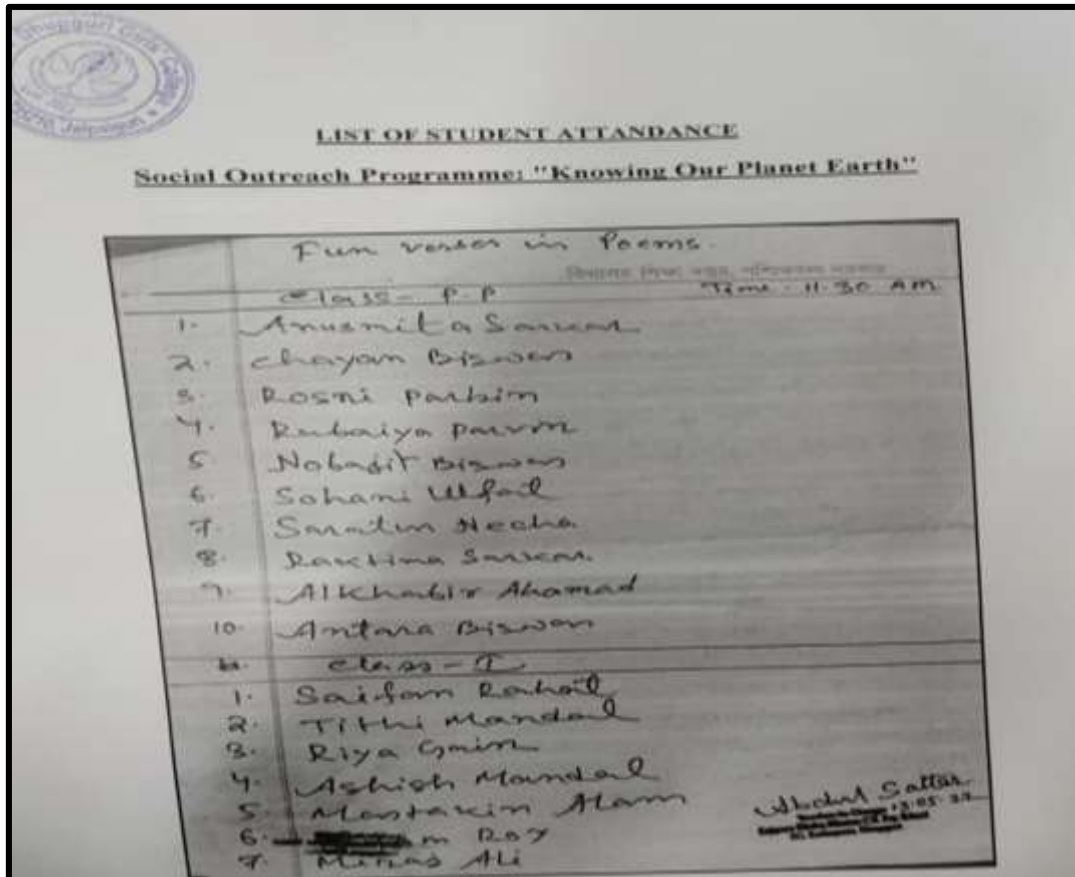 Dhupguri Girls' College
Jalpaiguri
LIST OF STUDENT ATTANDANCE
Social Outreach Programme: "Knowing Our Planet Earth"
Fun verses in Poems.
Class - P.P Time - 11.30 AM
1. Anusmita Sarkar
2. Chayan Biswas
3. Rosni Parbin
4. Rubaiya Parvin
5. Nobajit Biswas
6. Sohani
7. Necha
8. Raktima Sarkar
9. Alkhabir Ahamad
10. Antara Biswas
Class - I
1. Rahat
2. Tithi Mandal
3. Riya Gain
4. Ashish Mandal
5. Mastakin Alam
6. Roy
7. Ali
Abdul Sattar